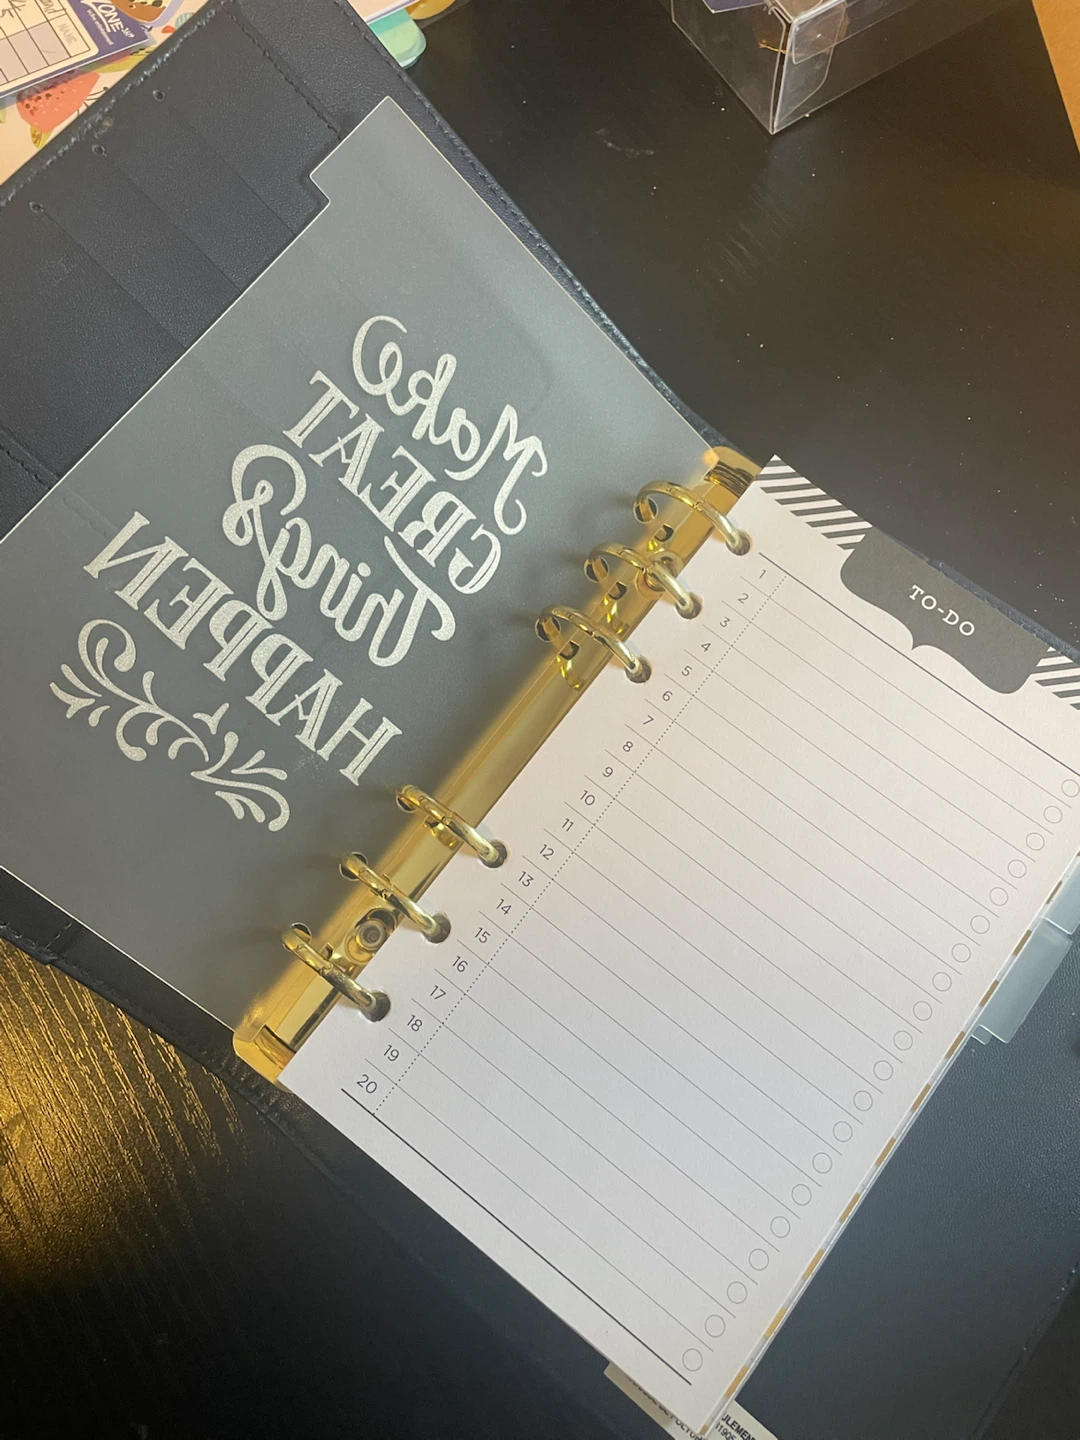 Make
GREAT
Things
HAPPEN
TO-DO
1
2
3
4
5
6
7
8
9
10
11
12
13
14
15
16
17
18
19
20
ZONE
NAME